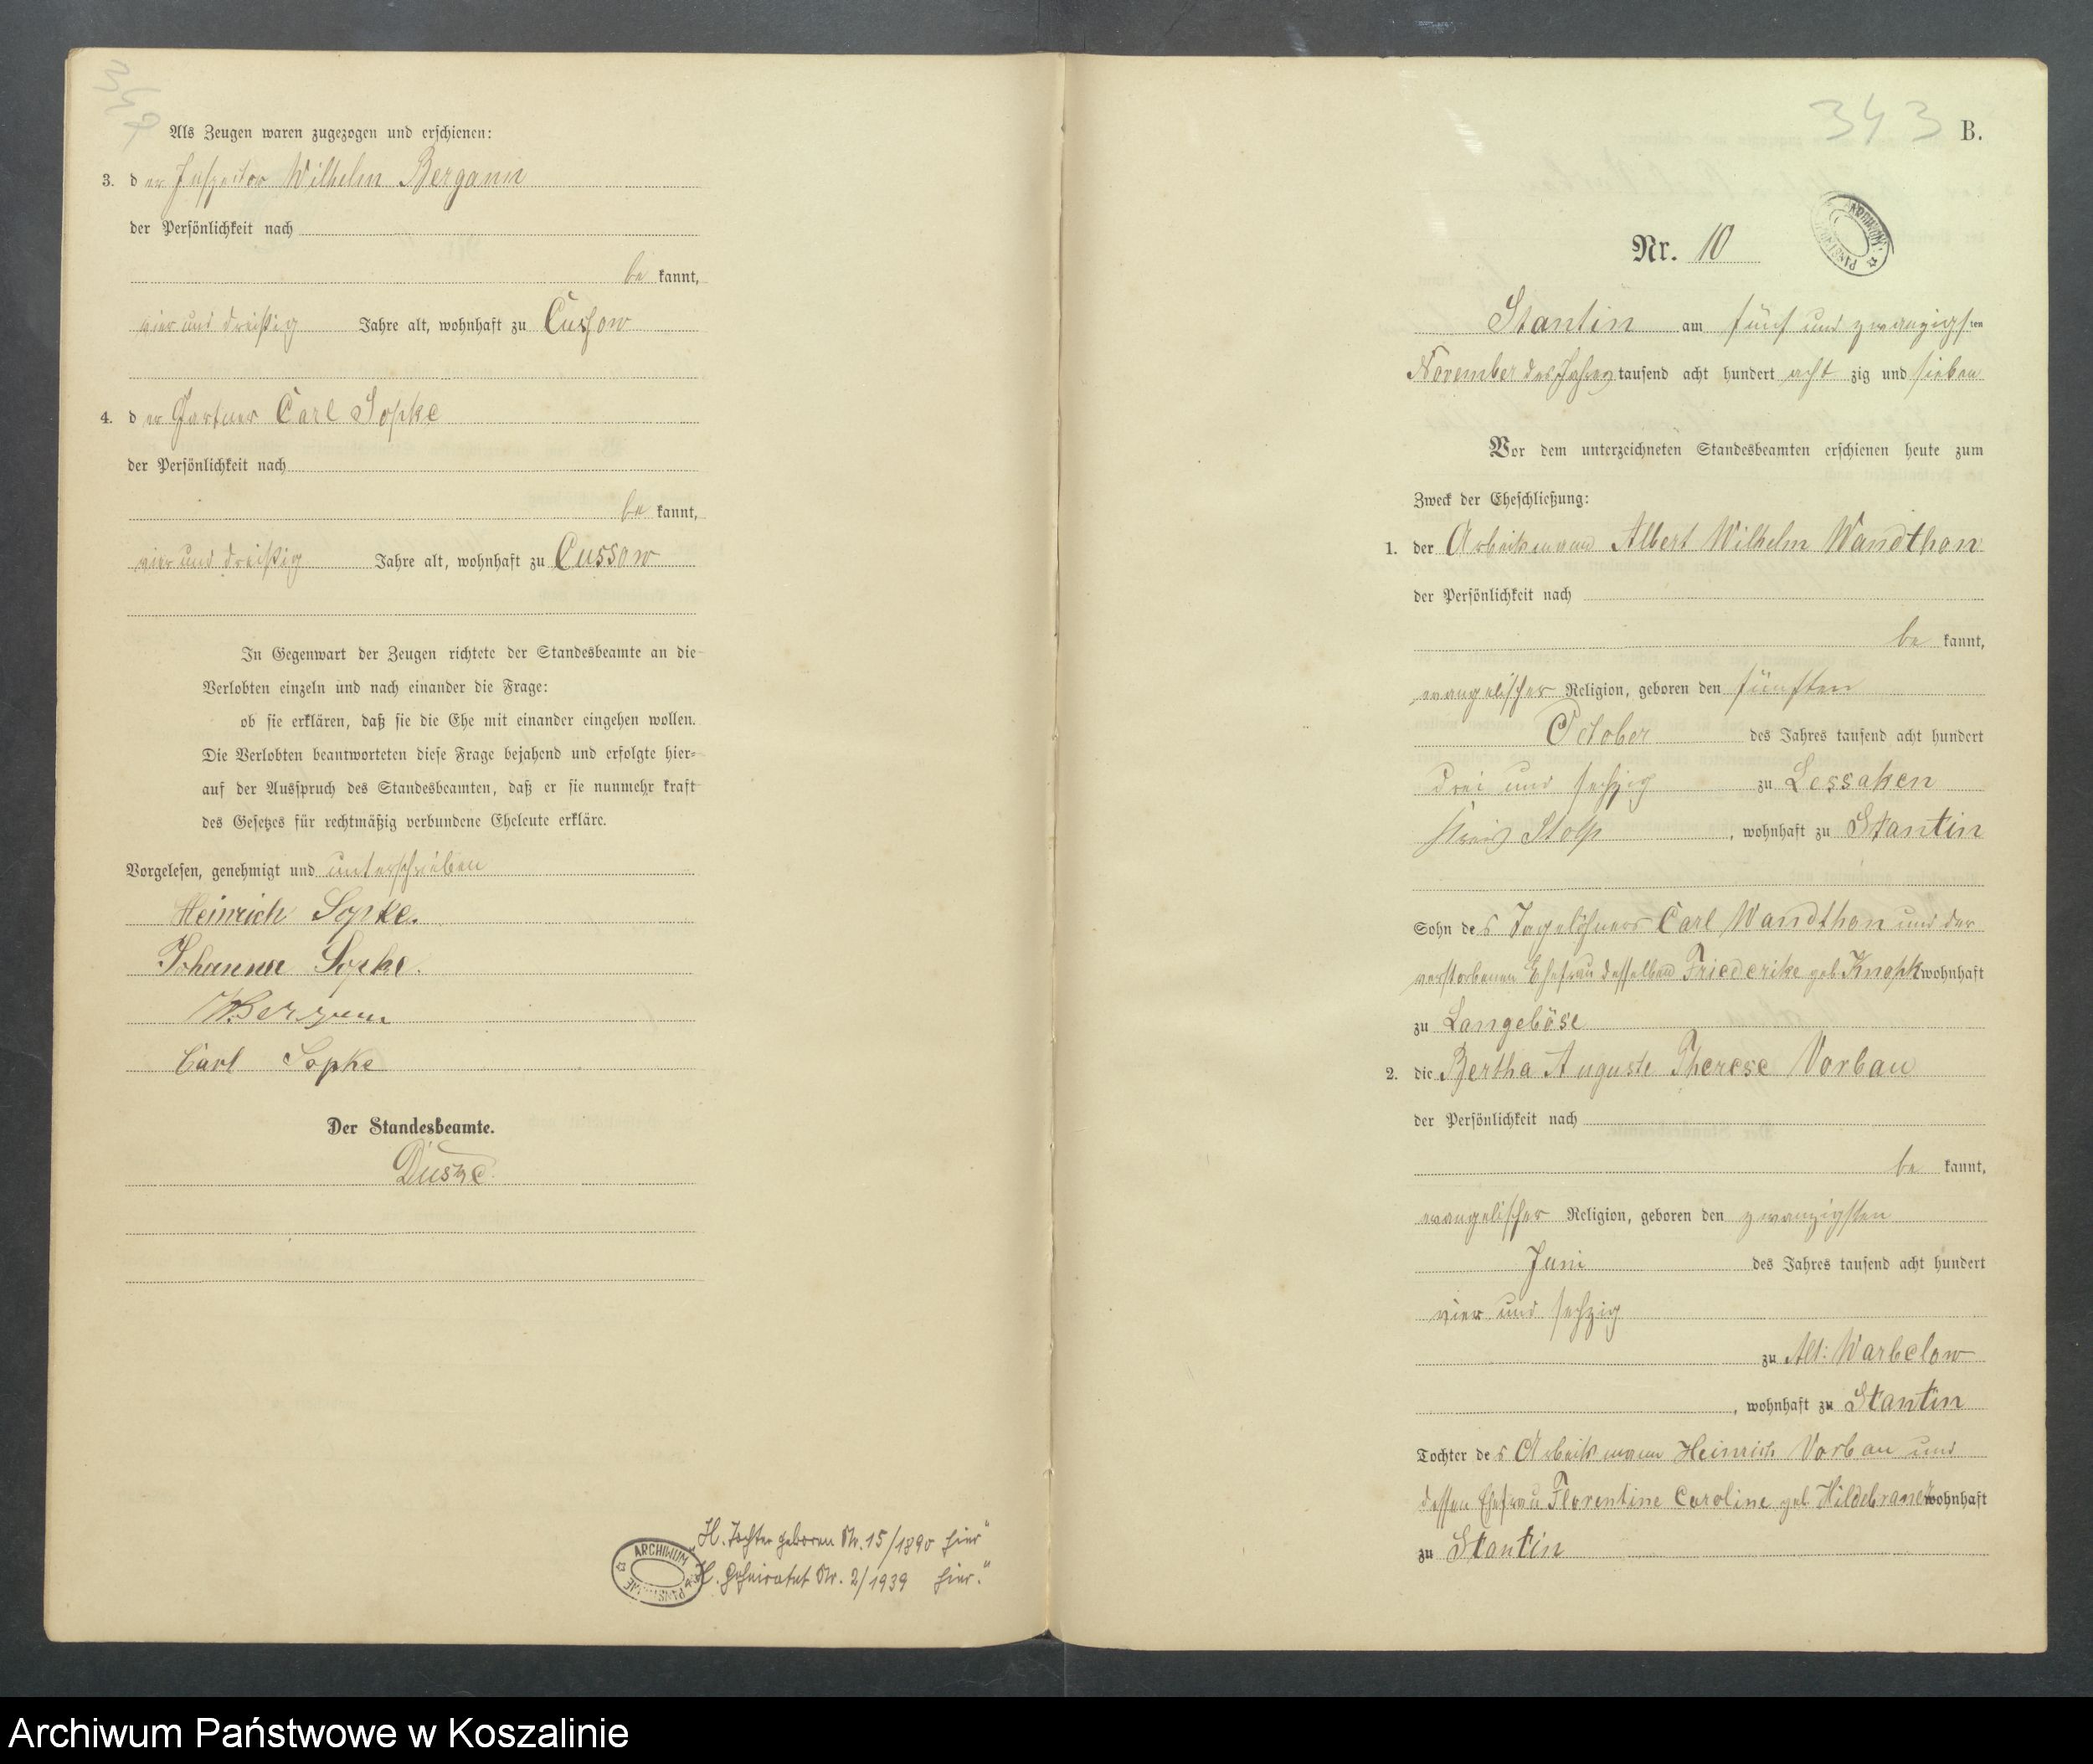 342
Als Zeugen waren zugezogen und erschienen:
3. der Inspector Wilhelm Bergann
der Persönlichkeit nach
be kannt,
vier und dreißig Jahre alt, wohnhaft zu Cussow
4. der Gärtner Carl Sopke
der Persönlichkeit nach
be kannt,
vier und dreißig Jahre alt, wohnhaft zu Cussow
In Gegenwart der Zeugen richtete der Standesbeamte an die
Verlobten einzeln und nach einander die Frage:
ob sie erklären, daß sie die Ehe mit einander eingehen wollen.
Die Verlobten beantworteten diese Frage bejahend und erfolgte hier-
auf der Ausspruch des Standesbeamten, daß er sie nunmehr kraft
des Gesetzes für rechtmäßig verbundene Eheleute erkläre.
Vorgelesen, genehmigt und unterschrieben
Heinrich Sopke.
Johanna Sopke.
Carl Sopke
Der Standesbeamte.
„H. Tochter geboren Nr. 15/1890 hier“
H. Geheiratet Nr. 2/1939 hier.“
ARCHIWUM PAŃSTWOWE
343
B.
ARCHIWUM PAŃSTWOWE
Nr. 10
Stantin am fünf und zwanzigsten
November des Jahres tausend acht hundert acht zig und sieben
Vor dem unterzeichneten Standesbeamten erschienen heute zum
Zweck der Eheschließung:
1. der Arbeitsmann Albert Wilhelm Wandthon
der Persönlichkeit nach
be kannt,
evangelischer Religion, geboren den fünften
October des Jahres tausend acht hundert
drei und sechzig zu Lessaken
Kreis Stolp, wohnhaft zu Stantin
Sohn des Tagelöhners Carl Wandthon und der
verstorbenen Ehefrau desselben Friederike geb. Knopk wohnhaft
zu Langeböse
2. die Bertha Auguste Therese Vorbau
der Persönlichkeit nach
be kannt,
evangelischer Religion, geboren den zwanzigsten
Juni des Jahres tausend acht hundert
vier und sechzig
zu Alt: Warbelow
, wohnhaft zu Stantin
Tochter des Arbeitsmann Heinrich Vorbau und
dessen Ehefrau Florentine Caroline geb. Hildebrandt wohnhaft
zu Stantin
Archiwum Państwowe w Koszalinie